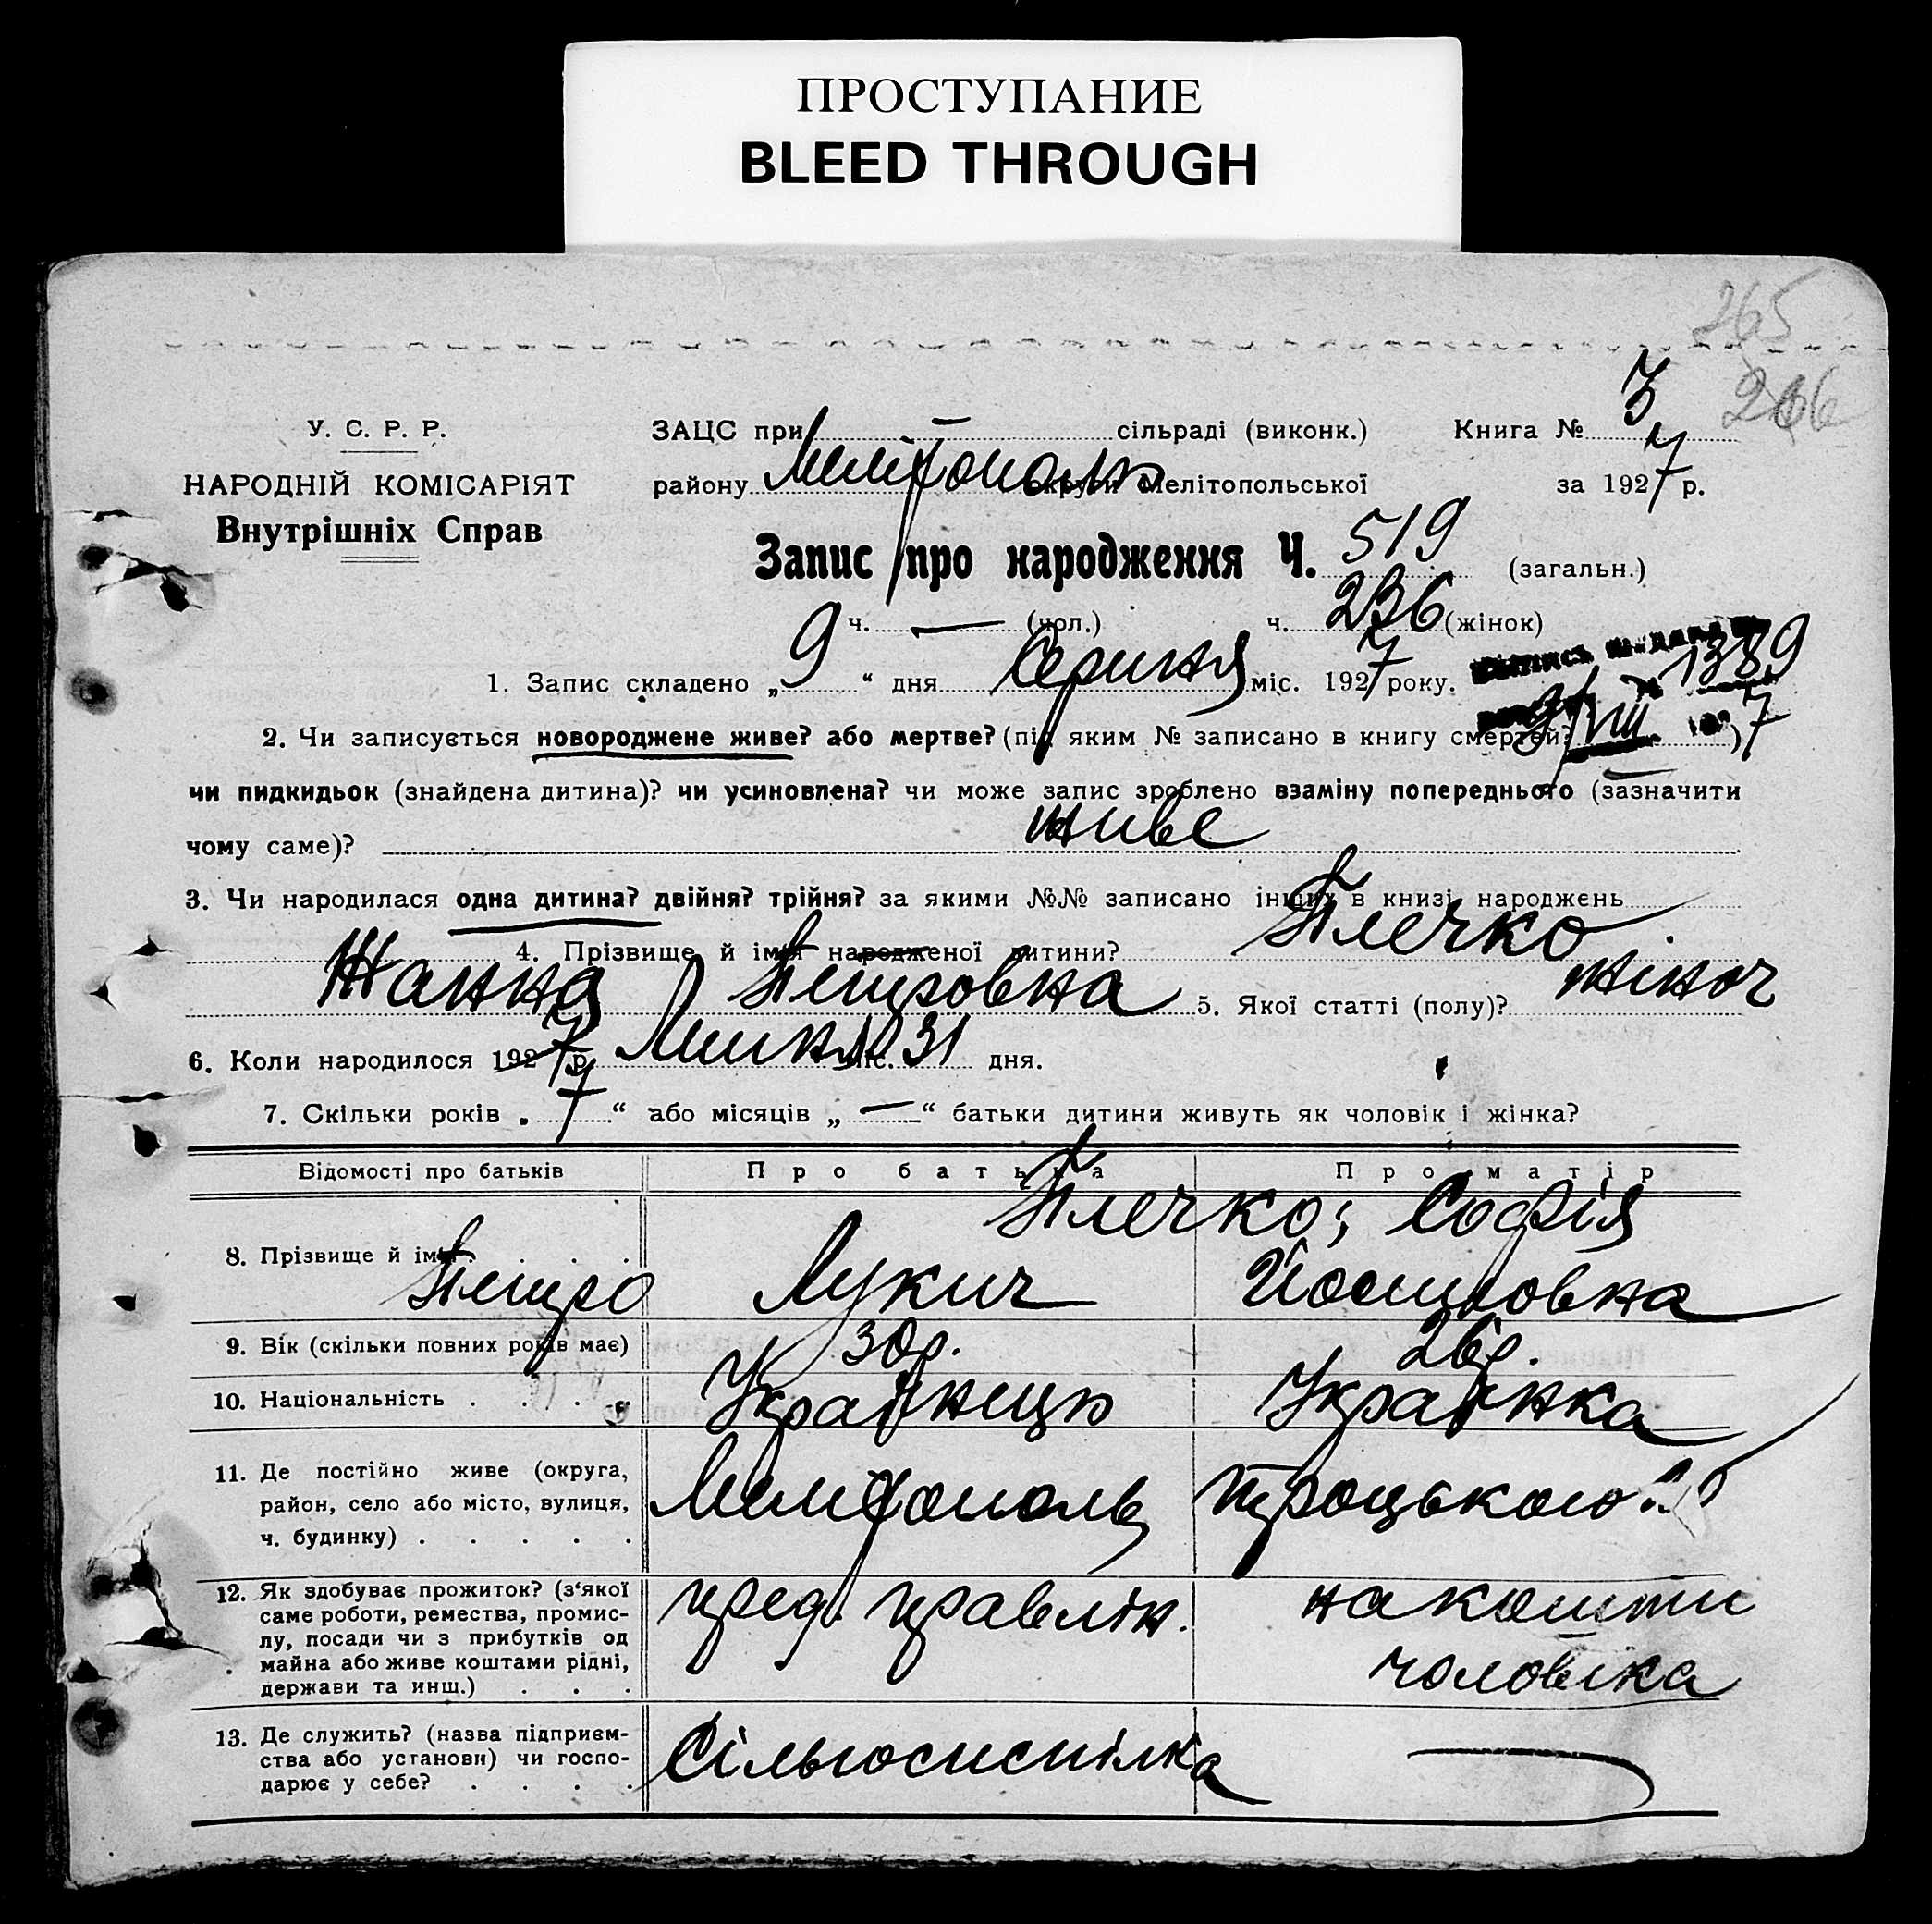 ПРОСТУПАНИЕ
BLEED THROUGH
265
266
У. С. Р. Р.
НАРОДНІЙ КОМІСАРІЯТ
Внутрішніх Справ
ЗАЦС при сільраді (виконк.) Книга № 3
району Мелітополь округи Мелітопольської за 1927 р.
Запис про народження Ч. 519 (загальн.)
ч. — (чол.) ч. 236 (жінок)
1. Запис складено „9“ дня Серпня міс. 1927 року.
1389
9/VIII 1927
2. Чи записується новороджене живе? або мертве? (під яким № записано в книгу смертей? )
чи пидкидьок (знайдена дитина)? чи усиновлена? чи може запис зроблено взаміну попереднього (зазначити
чому саме)? живе
3. Чи народилася одна дитина? двійня? трійня? за якими №№ записано інших в книзі народжень
4. Прізвище й імя народженої дитини? Плечко
Жанна Петровна 5. Якої статті (полу)? жіноч
6. Коли народилося 1927 р. Липня міс. 31 дня.
7. Скільки років „7“ або місяців „—“ батьки дитини живуть як чоловік і жінка?
Відомості про батьків Про батька Про матір
Плечко; Софія
8. Прізвище й імя . . . .
Петро Лукич Йосиповна
9. Вік (скільки повних років має) 30р. 26р.
10. Національність . . . . Українець Українка
11. Де постійно живе (округа,
район, село або місто, вулиця,
ч. будинку) . . . . .
Мелітополь Троцького
12. Як здобуває прожиток? (з'якої
саме роботи, ремества, промис-
лу, посади чи з прибутків од
майна або живе коштами рідні,
держави та инш.) . . .
пред. правлін. на кошти
чоловіка
13. Де служить? (назва підприєм-
ства або установи) чи госпо-
дарює у себе? . . . .
Сільгоспспілка —